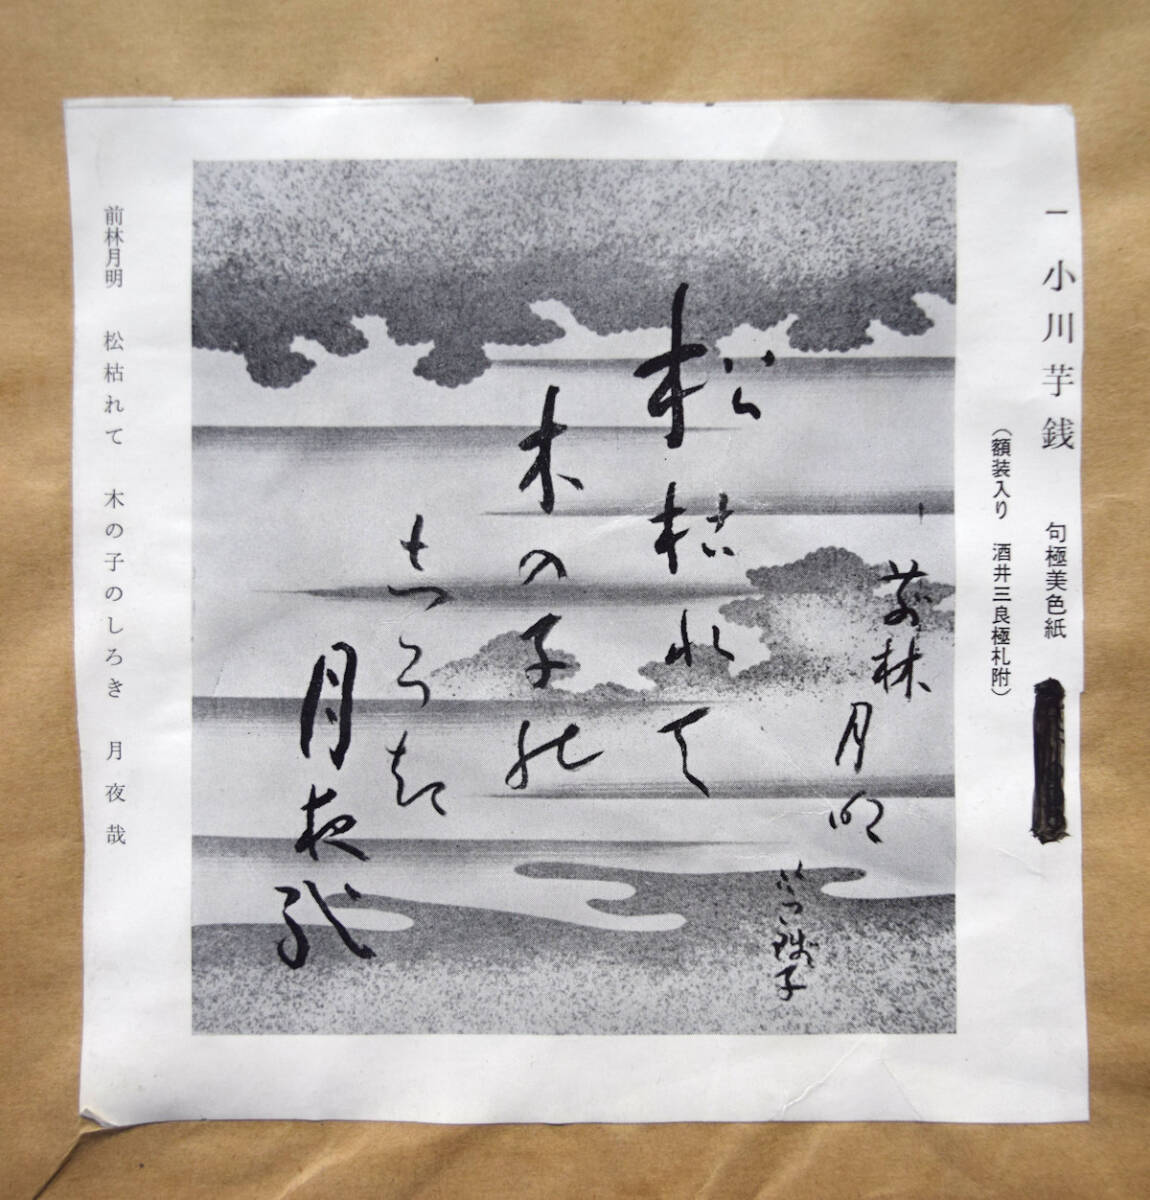 一 小川芋銭 句極美色紙
（額装入り 酒井三良極札附）
前林月明
松枯れて
木の子の
しろき
月夜哉
前林月明 松枯れて 木の子のしろき 月夜哉